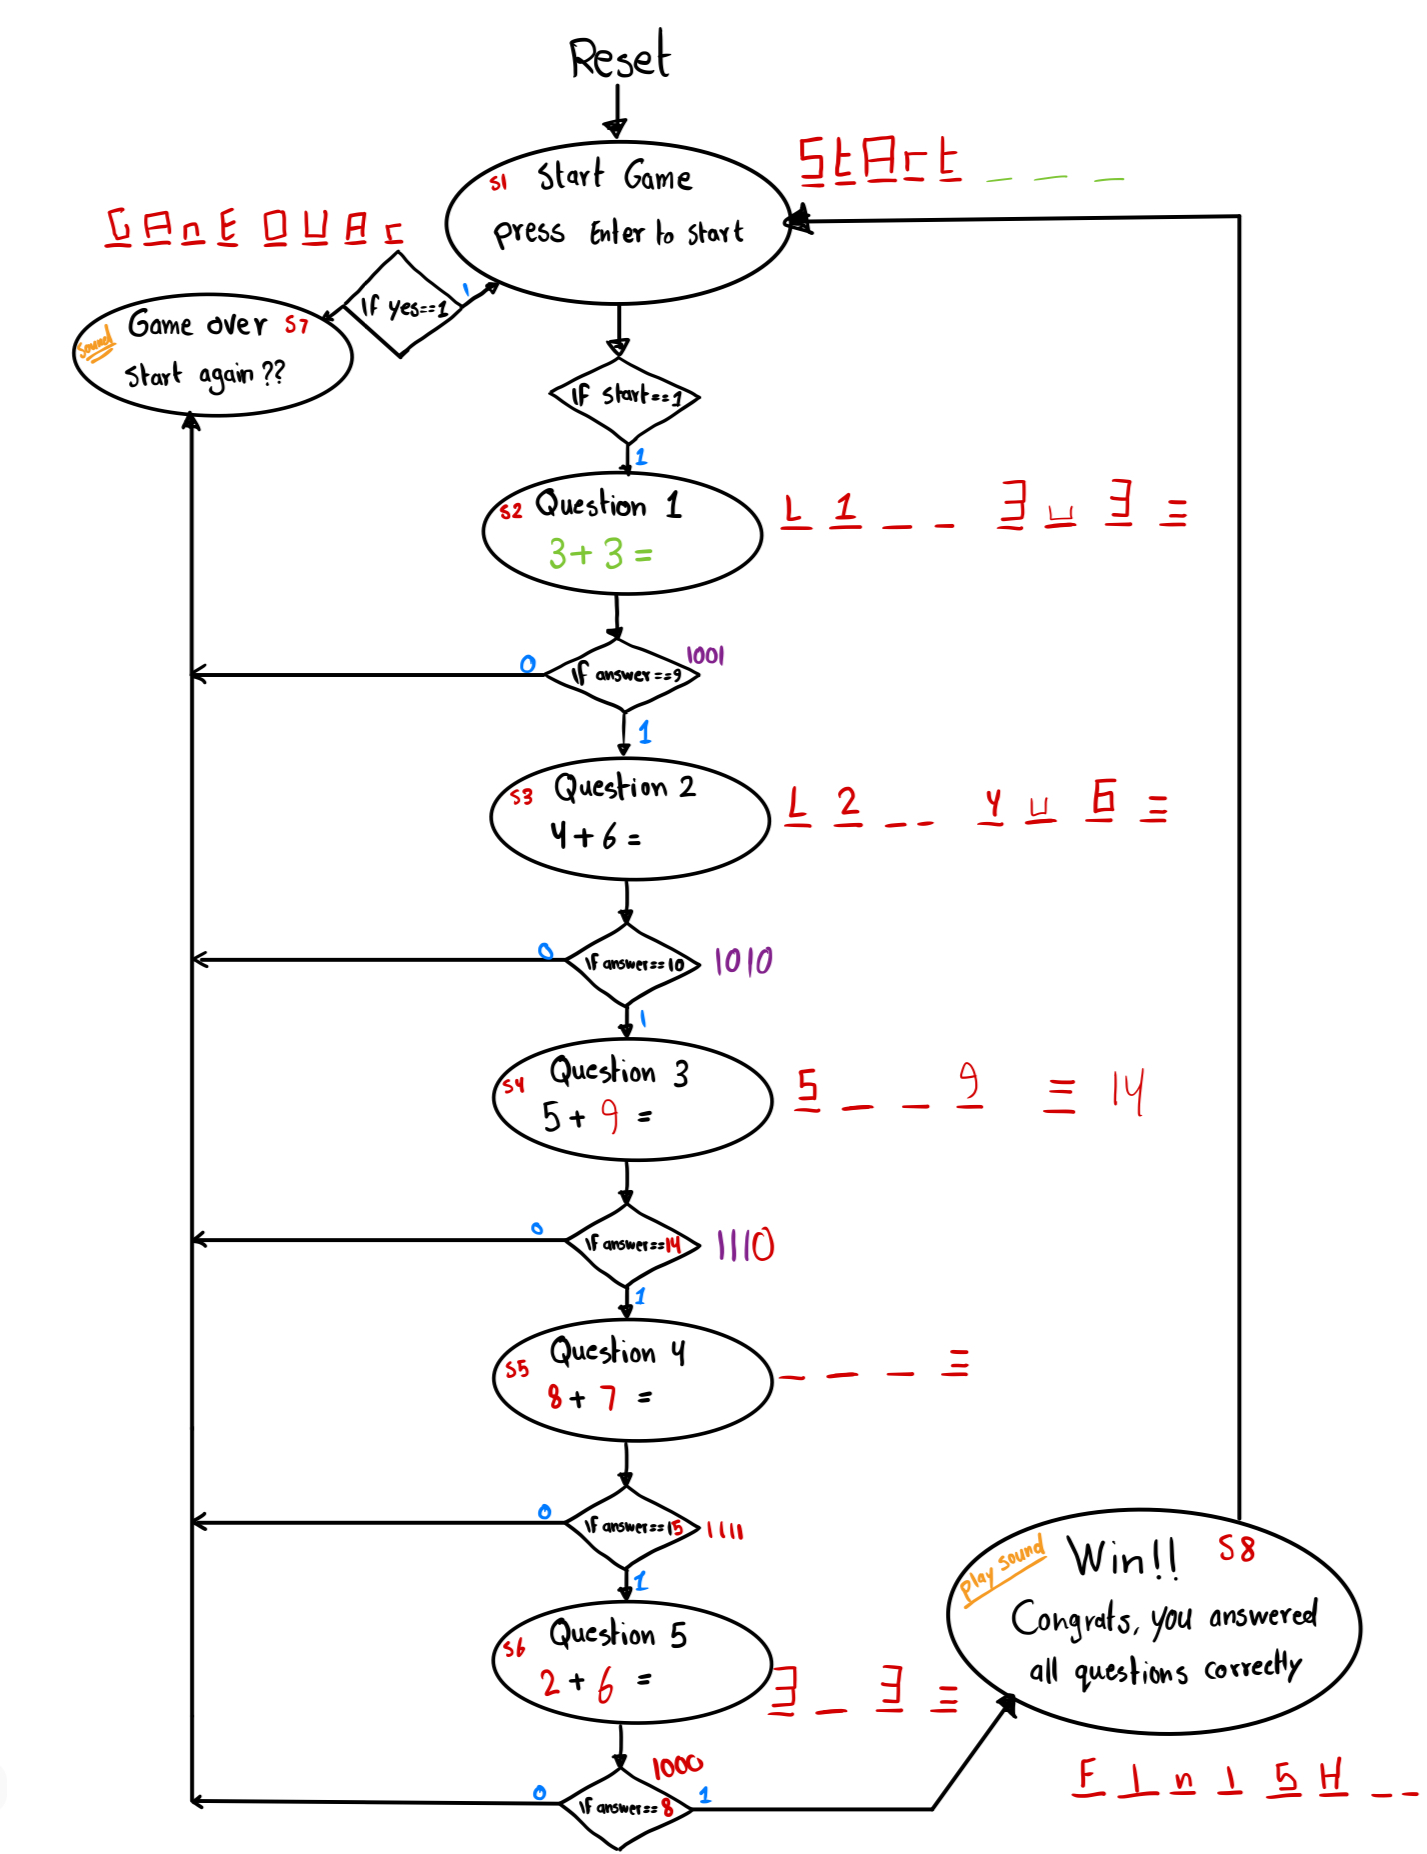 Reset
StArt _ _ _
S1 Start Game
press Enter to start
GAnE OUAr
If yes==1
1
Game over S7
sound
Start again??
If start==1
1
S2 Question 1
3+3=
L 1 _ _ 3 u 3 ≡
If answer==9
1001
0
1
S3 Question 2
4+6=
L 2 _ _ 4 u 6 ≡
If answer==10
1010
0
1
S4 Question 3
5+9=
5 _ _ 9 ≡ 14
If answer==14
1110
0
1
S5 Question 4
8+7=
_ _ _ ≡
If answer==15
1111
0
1
S6 Question 5
2+6=
3 _ 3 ≡
1000
If answer==8
0
1
play sound
Win!! S8
Congrats, you answered
all questions correctly
F I n I S H _ _